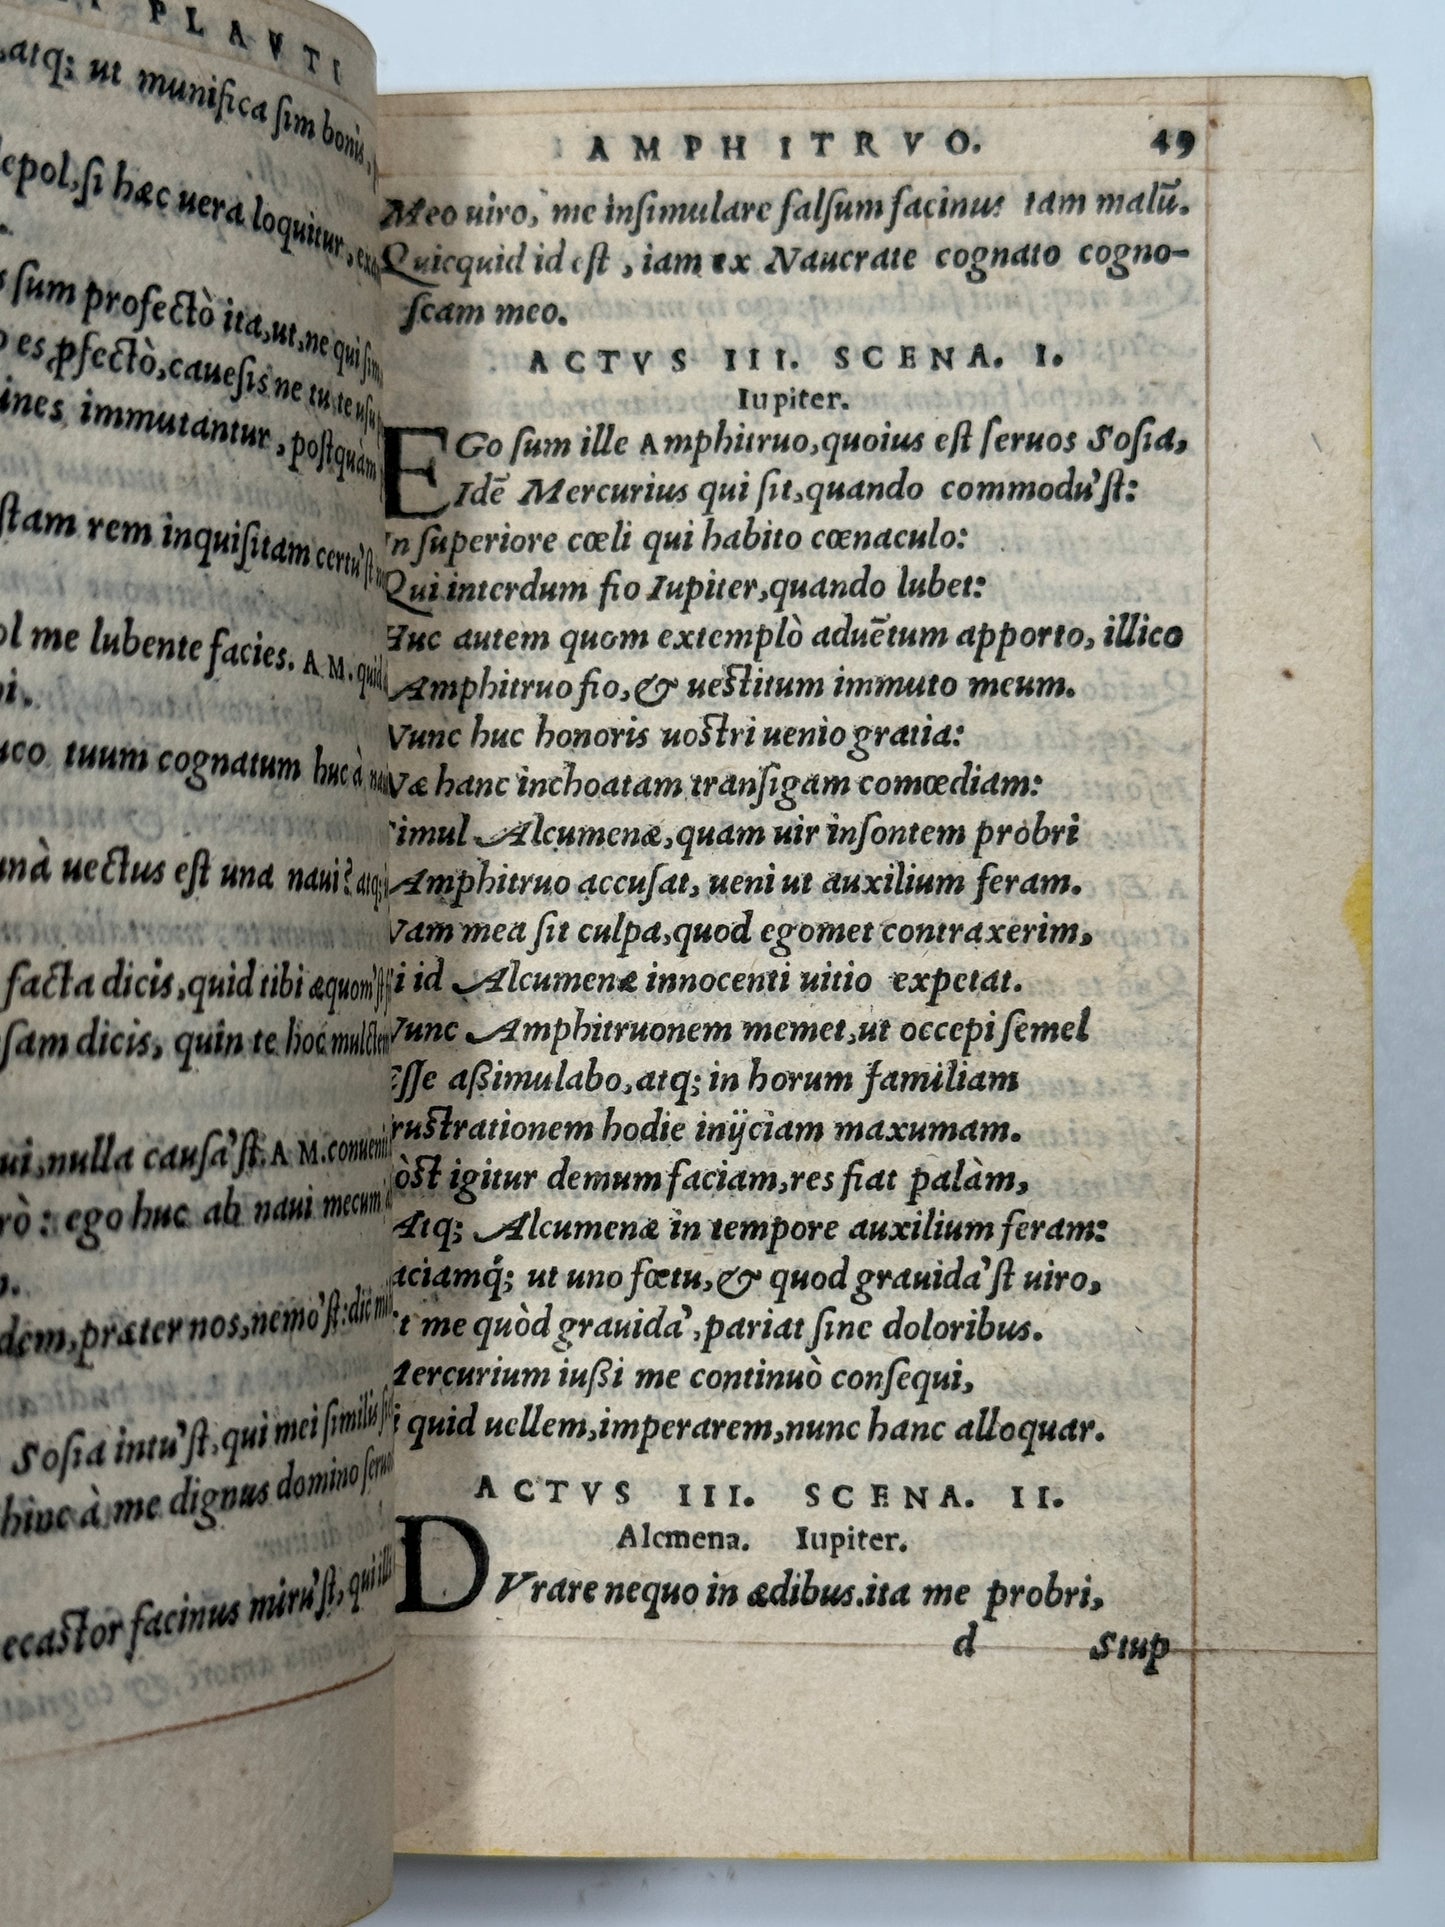 PLAVTI
atq; ut munifica sim bonis,
depol, si hæc uera loquitur,
sum profectò ita, ut, ne qui sim
es ꝓfectò, cauesis ne tu te usu
immutantur, postquàm
istam rem inquisitam certu'st
me lubente facies. AM. quid
tuum cognatum huc à naui
uectus est una naui? atq;
facta dicis, quid tibi æquom'st
dicis, quin te hoc mulctem
nulla causa'st. AM. conuenit
ego huc ab naui mecum
præter nos, nemo'st: dic mihi
Sosia intu'st, qui mei similis
hinc à me dignus domino seruos
ecastor facinus miru'st, qui
AMPHITRVO. 49
Meo uiro, me insimulare falsum facinus tam malũ.
Quicquid id est, iam ex Naucrate cognato cogno-
scam meo.
ACTVS III. SCENA. I.
Iupiter.
EGo sum ille Amphitruo, quoius est seruos Sosia,
Idẽ Mercurius qui sit, quando commodu'st:
In superiore cœli qui habito cœnaculo:
Qui interdum fio Iupiter, quando lubet:
Huc autem quom extemplò aduẽtum apporto, illico
Amphitruo fio, & uestitum immuto meum.
Nunc huc honoris uostri uenio gratia:
Næ hanc inchoatam transigam comœdiam:
Simul Alcumenæ, quam uir insontem probri
Amphitruo accusat, ueni ut auxilium feram.
Nam mea sit culpa, quod egomet contraxerim,
Si id Alcumenæ innocenti uitio expetat.
Nunc Amphitruonem memet, ut occepi semel
Esse aßimulabo, atq; in horum familiam
Frustrationem hodie inijciam maxumam.
Pòst igitur demum faciam, res fiat palàm,
Atq; Alcumenæ in tempore auxilium feram:
Faciamq́; ut uno fœtu, & quod grauida'st uiro,
Et me quòd grauida', pariat sine doloribus.
Mercurium iußi me continuò consequi,
Si quid uellem, imperarem, nunc hanc alloquar.
ACTVS III. SCENA. II.
Alcmena. Iupiter.
DVrare nequo in ædibus. ita me probri,
d Stup